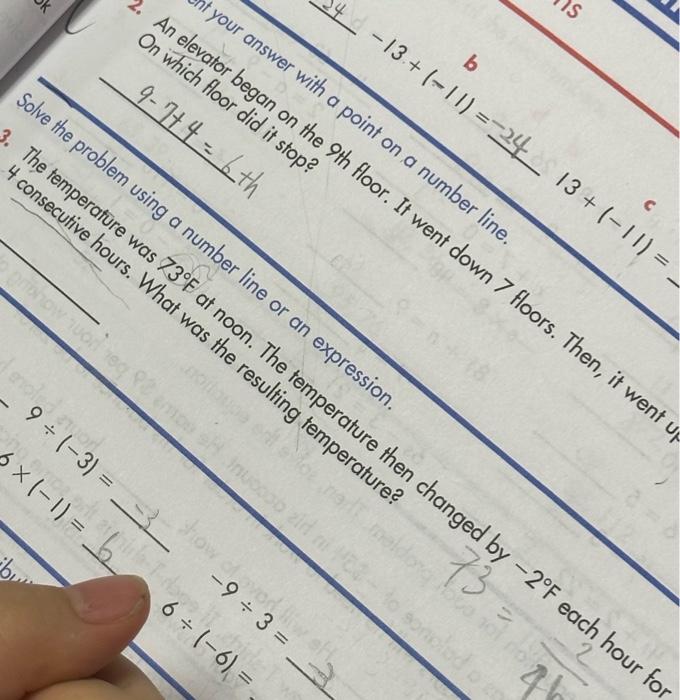 ns
24
b
-13 + (-11) = -24
c
13 + (-11) =
your answer with a point on a number line.
2. An elevator began on the 9th floor. It went down 7 floors. Then, it went up
On which floor did it stop?
9-7+4=6th
Solve the problem using a number line or an expression.
3. The temperature was 73°F at noon. The temperature then changed by -2°F each hour for
4 consecutive hours. What was the resulting temperature?
73
=
-2
9 ÷ (-3) = -3
-9 ÷ 3 = -3
6 × (-1) = 6
6 ÷ (-6) =